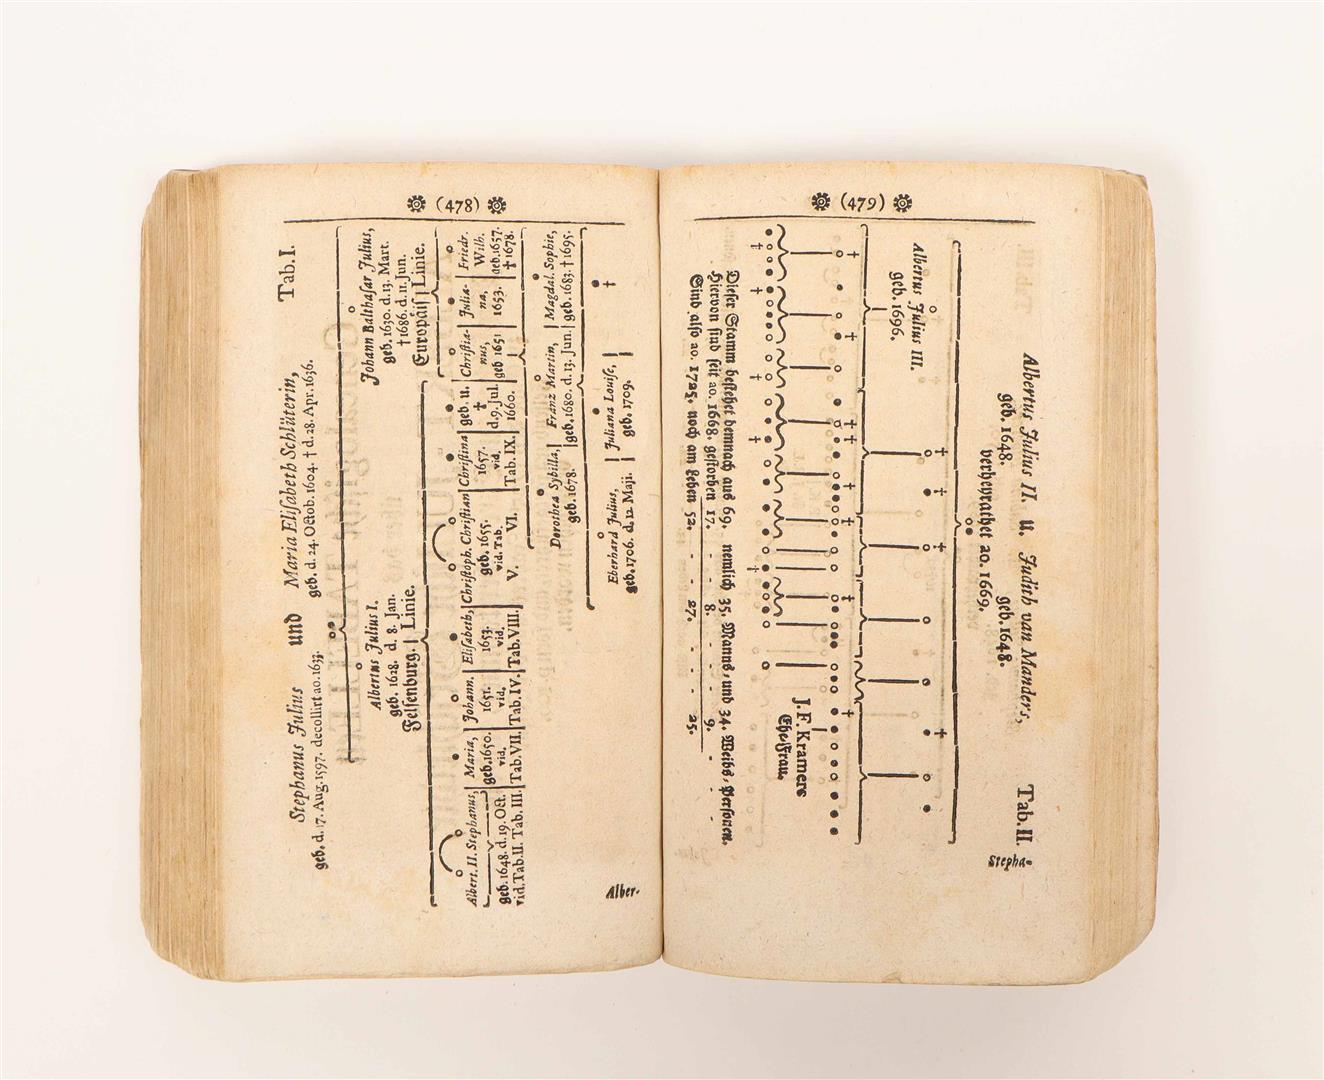 (478)
Tab. I.
Stephanus Julius und Maria Eliſabeth Schlüterin,
geb. d. 17. Aug. 1597. decollirt ao. 1633. geb. d. 24. Octob. 1604. † d. 28. Apr. 1636.
Albertus Julius I. Johann Balthaſar Julius,
geb. 1628. d. 8. Jan. geb. 1630. d. 13. Mart.
† 1686. d. 11. Jun.
Felſenburg. | Linie. Europäiſ | Linie.
Albert. II. Stephanus,
geb. 1648. d. 19. Oct.
vid. Tab. II. Tab. III.
Maria,
geb. 1650.
vid.
Tab. VII.
Johann.
1651.
vid,
Tab. IV.
Eliſabeth,
1653.
vid.
Tab. VIII.
Chriſtoph. Chriſtian
geb. 1655.
vid. Tab.
V. VI.
Chriſtina
1657.
vid.
Tab. IX.
geb. u.
†
d. 9. Jul.
1660.
Chriſtia-
nus,
geb 1651
Julia-
na,
1653.
Friedr.
Wilh.
geb. 1657.
† 1678.
Dorothea Sybilla,
geb. 1678.
Franz Martin,
geb. 1680. d. 13. Jun.
Magdal. Sophie,
geb. 1683. † 1695.
Eberhard Julius,
geb. 1706. d. 12. Maji.
Juliana Louiſe,
geb. 1709.
†
Alber-
(479)
Tab. II.
Albertus Julius II. u. Judith van Manders,
geb. 1648. geb. 1648.
verheyrathet ao. 1669.
Albertus Julius III.
geb. 1696.
J. F. Kramers
Ehe-Frau.
Dieſer Stamm beſtehet demnach aus 69. nemlich 35. Manns- und 34. Weibs-Perſonen.
Hiervon ſind ſeit ao. 1668. geſtorben 17. - - 8. - - - - 9. -
Sind alſo ao. 1725. noch am Leben 52. - - 27. - - - - 25.
Stepha-